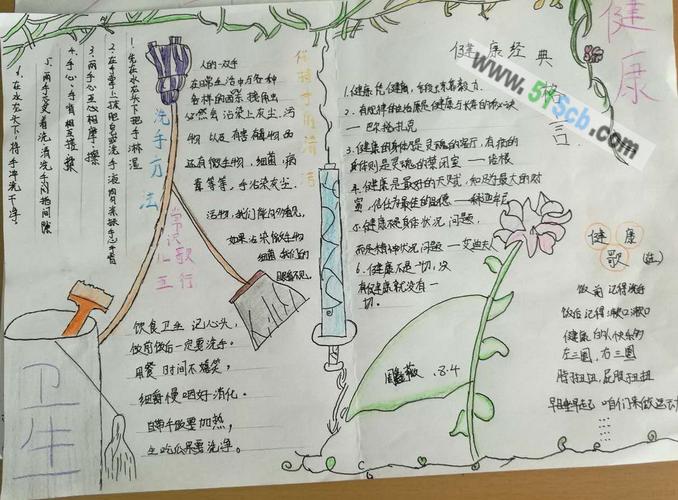 健康
健康经典
格言
www.51Scb.com
1.健康
2.有规律的生活是健康与长寿的秘诀
——巴尔扎克
3.健康的身体是灵魂的客厅，有病的
身体则是灵魂的禁闭室——培根
4.健康是最好的天赋，知足是最大的财
富，信任为最佳的品德
5.健康不是身体状况问题，
而是精神状况问题——艾迪夫人
6.健康不是一切，没
有健康就没有一
切。
健康
歌
饭前记得洗手
饭后记得漱口漱口
健康的人快乐的
左三圈，右三圈
脖扭扭，屁股扭扭
早睡早起 咱们来做运动
8.4
保持手的清洁
人的一双手
在日常生活中与各种
各样的
必然会沾染上灰尘，污
物以及有害
还有微生物，细菌，病
毒等等，手沾灰尘，
污物，我们能
如果沾染微生物
细菌，我们的
眼看不见。
洗手方法
1.先在水龙头下把手淋湿
2.在手掌上抹肥皂或洗手液
3.两手心互相摩擦
4.手心，手背相互搓揉
5.两手交叉着洗清洗手的指间隙
6.在水龙头下将手冲洗干净
常识歌
饮食卫生 记心头，
饭前饭后一定要洗手。
用餐时间不嬉笑，
细嚼慢咽好消化。
剩饭要加热，
生吃瓜果要洗净。
卫生